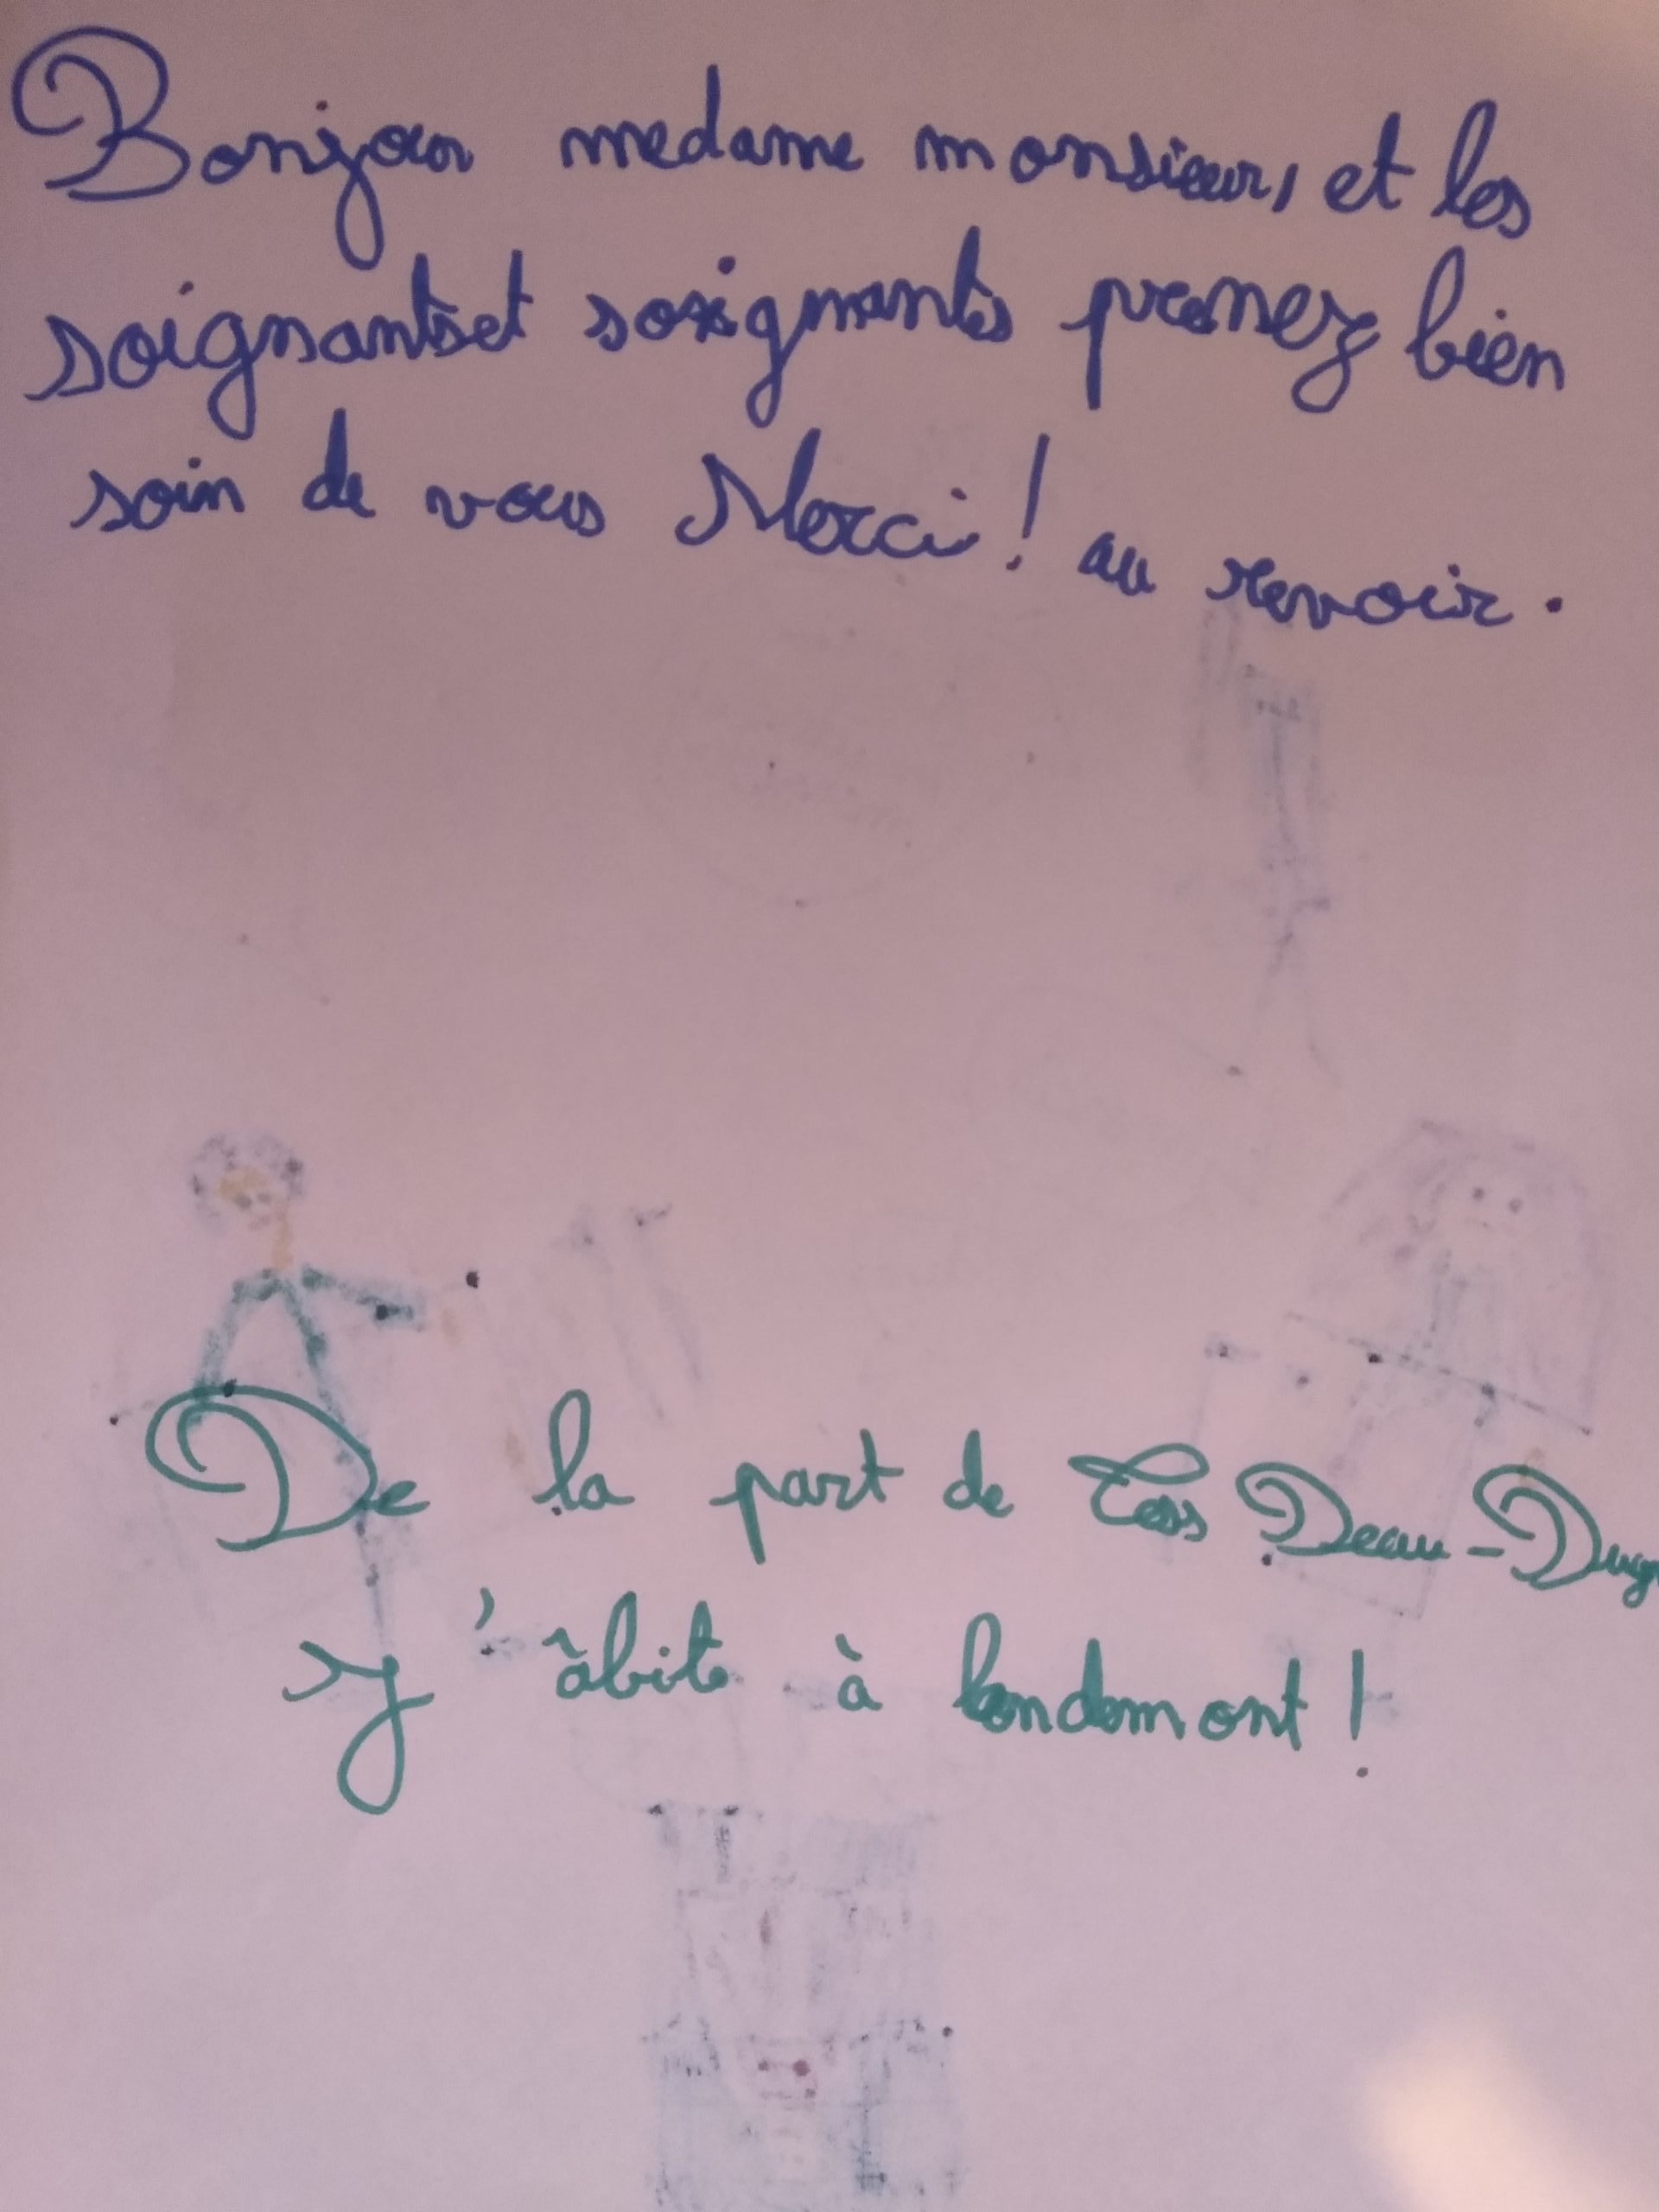 Bonjour medame monsieur, et les
soignantset soignants prenez bien
soin de vous Merci ! au revoir.
De la part de Tess Deau-Dug
J'âbite à londomont !